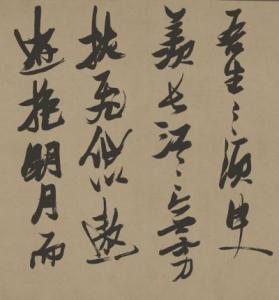 吾生之須臾
羨長江之無窮
挾飛仙以遨
遊抱明月而